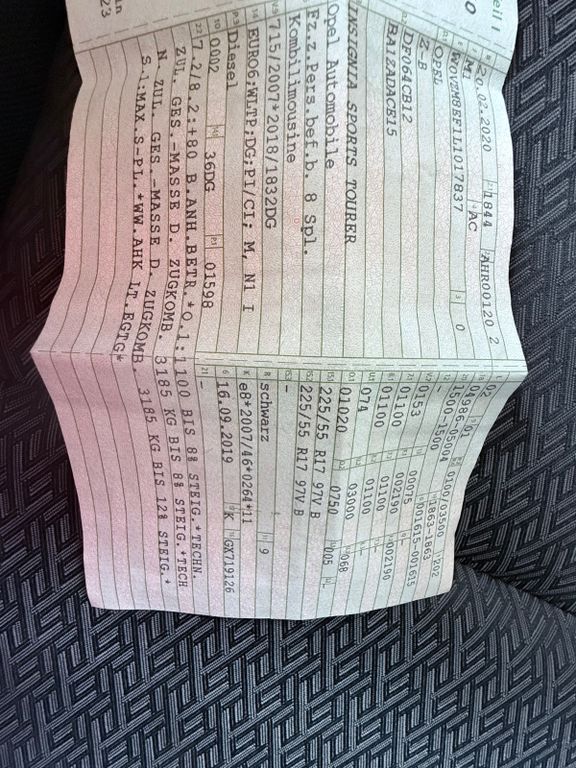 eil I
0
in
23
20.02.2020 1844 AHR00120 2
M1 AC
W0VZM8EF1L1017837 3 0
OPEL
Z-B
DF064CB12
BA1ZADACB15
INSIGNIA SPORTS TOURER
Opel Automobile
Fz.z.Pers.bef.b. 8 Spl.
Kombilimousine
715/2007*2018/1832DG
EURO6;WLTP;DG;PI/CI; M, N1 I
Diesel
0002 36DG 01598
02
04986/01 0100/03500 202
1500-1500 1863-1863
0153 00075 001615-001615
01100 002190 -
01100 01100 002190
074 01100 -
01020 03000 068
0750 005 -
225/55 R17 97V B
225/55 R17 97V B
-
schwarz 9
e8*2007/46*0264*11
16.09.2019 K GX719126
21 -
22 7.2/8.2:+80 B.ANH.BETR.*O.1:1100 BIS 8% STEIG.*TECHN
ZUL. GES.-MASSE D. ZUGKOMB. 3185 KG BIS 8% STEIG.*TECH
N. ZUL. GES.-MASSE D. ZUGKOMB. 3185 KG BIS 12% STEIG.*
S.1:MAX.S-PL.*WW.AHK LT.EGTG*